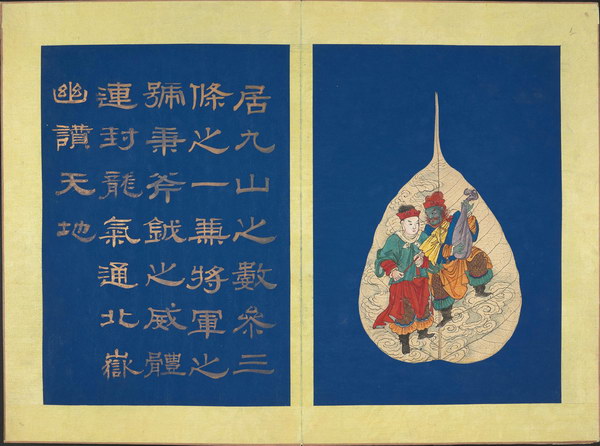 居九山之數參三
條之一兼將軍之
號秉斧鉞之威體
連封龍氣通北嶽
幽讚天地